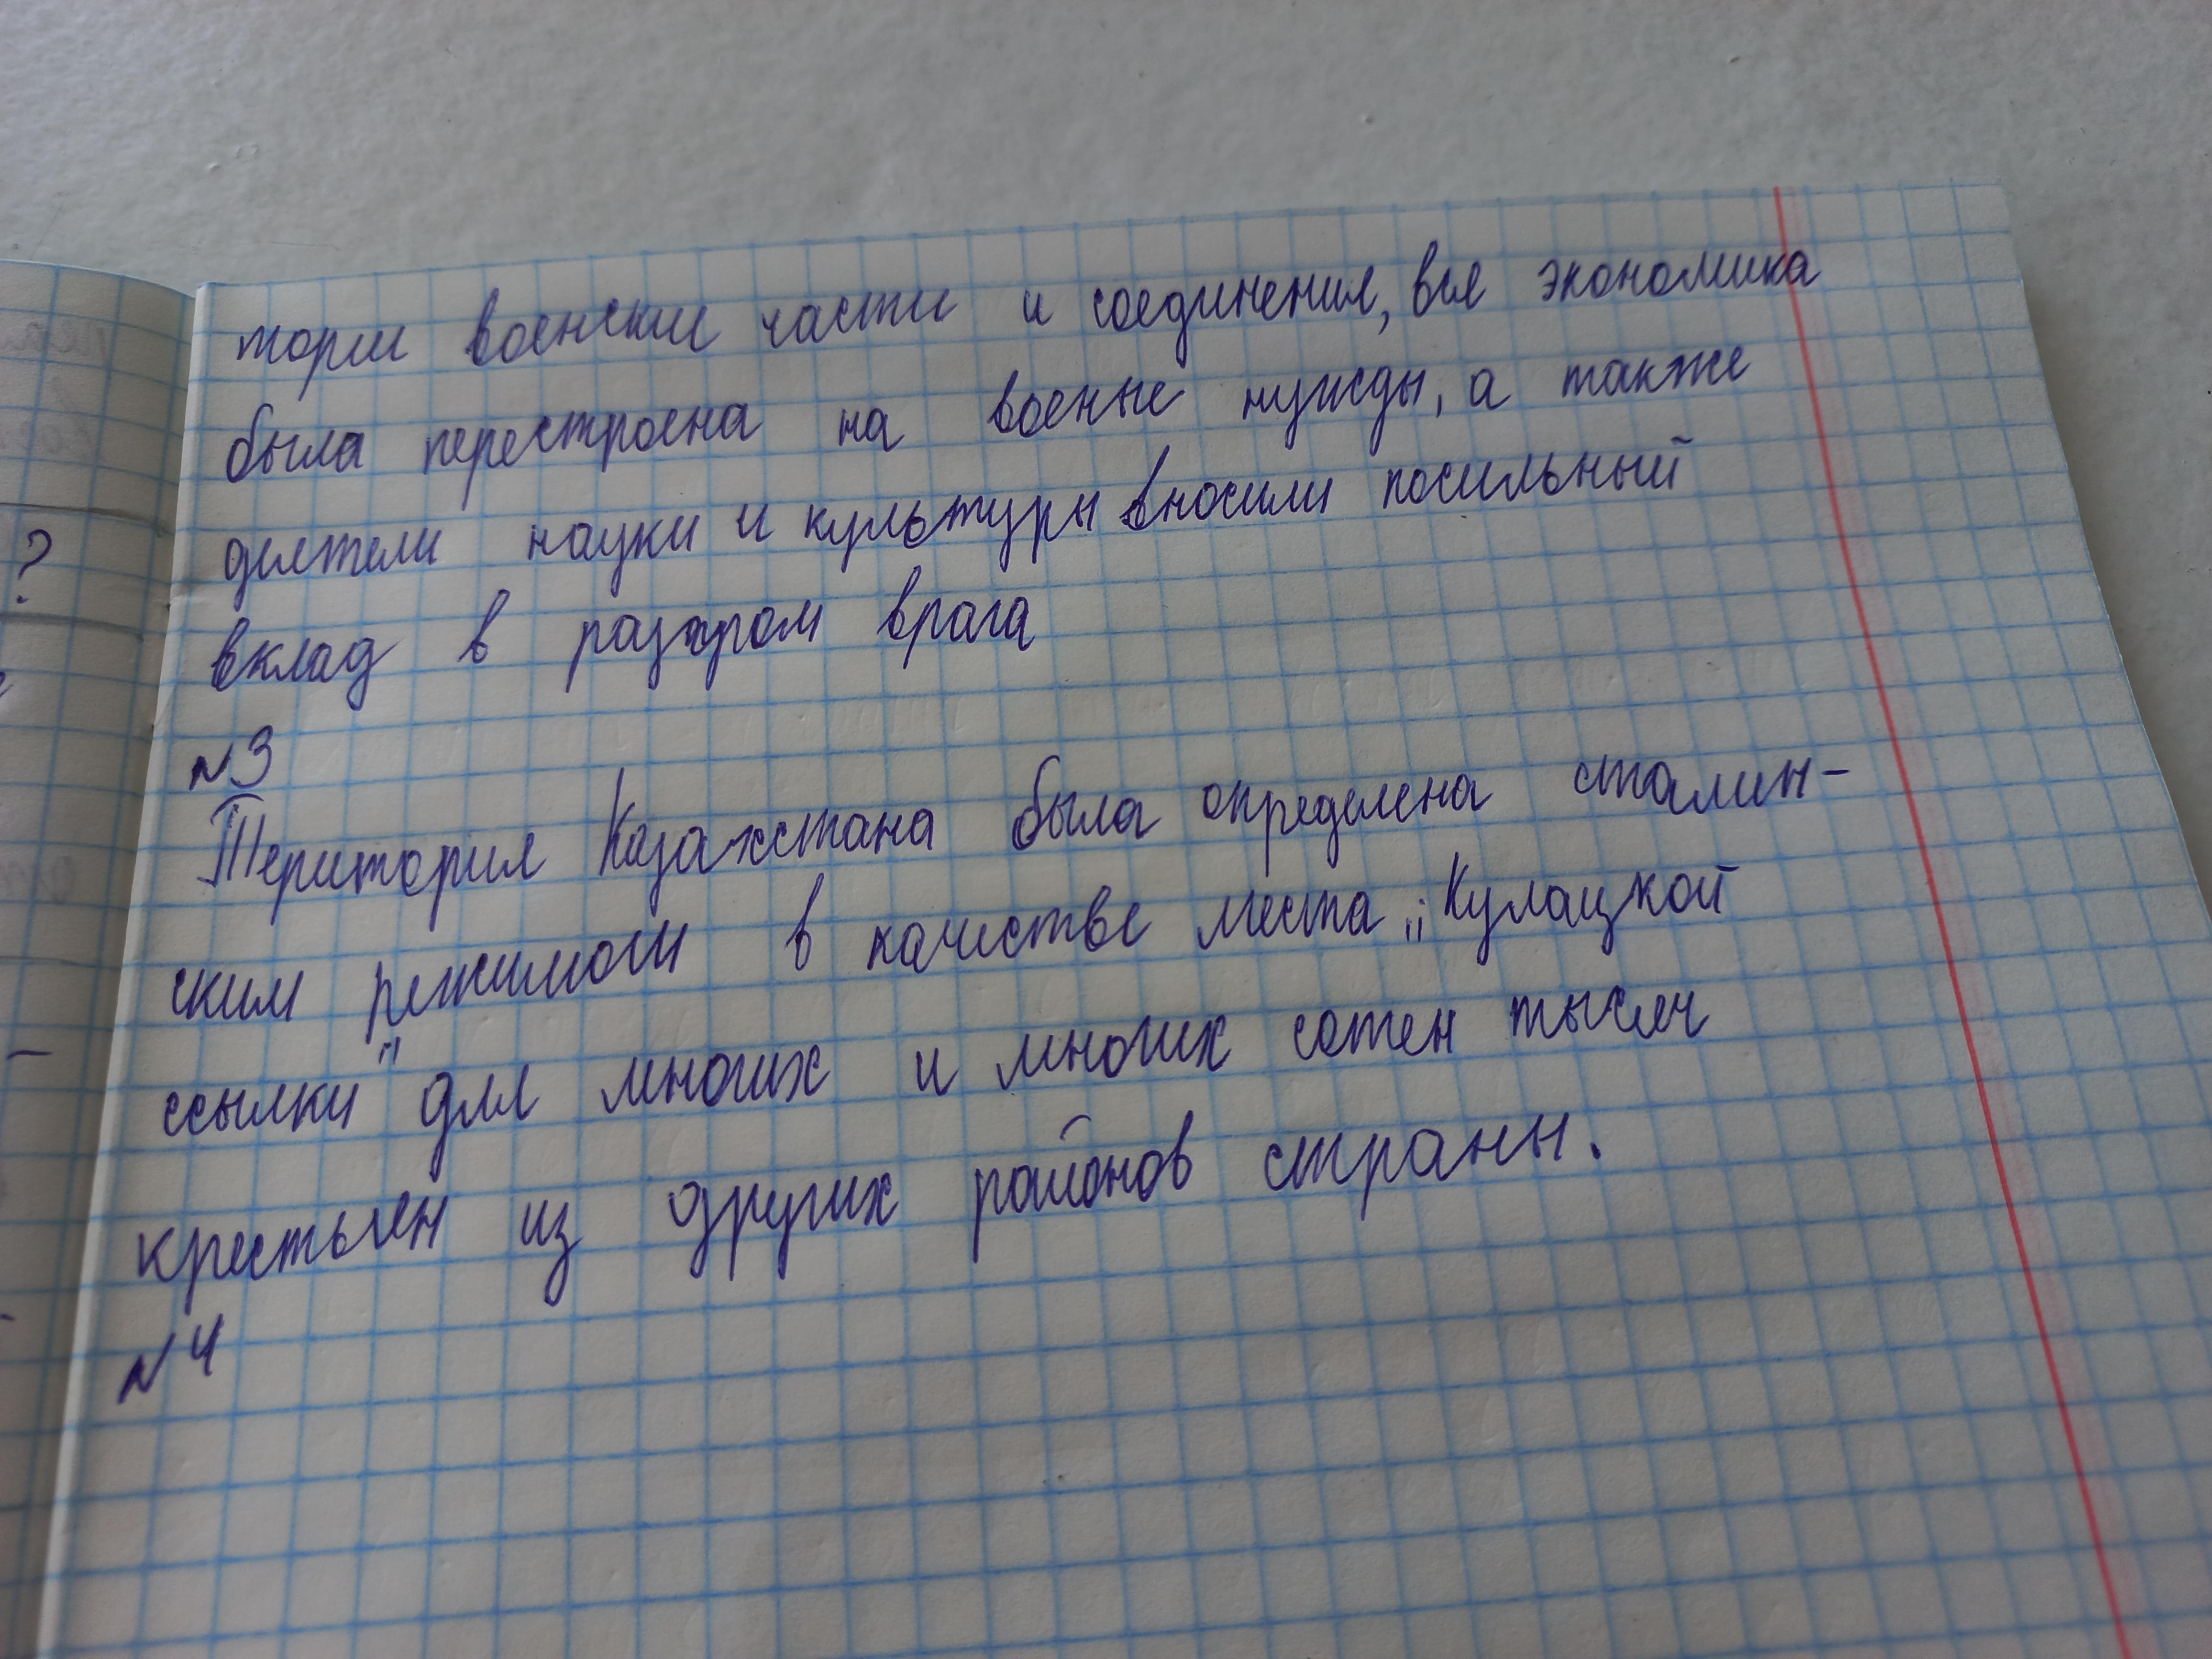 тории военские части и соединения, вся экономика
была перестроена на военые нужды, а также
деятели науки и культуры вносили посильный
вклад в разгром врага
?
N3
Територия Казахстана была определена сталин-
ским режимом в качестве места „Кулацкой
ссылки" для многих и многих сотен тысяч
крестьян из других районов страны.
N4